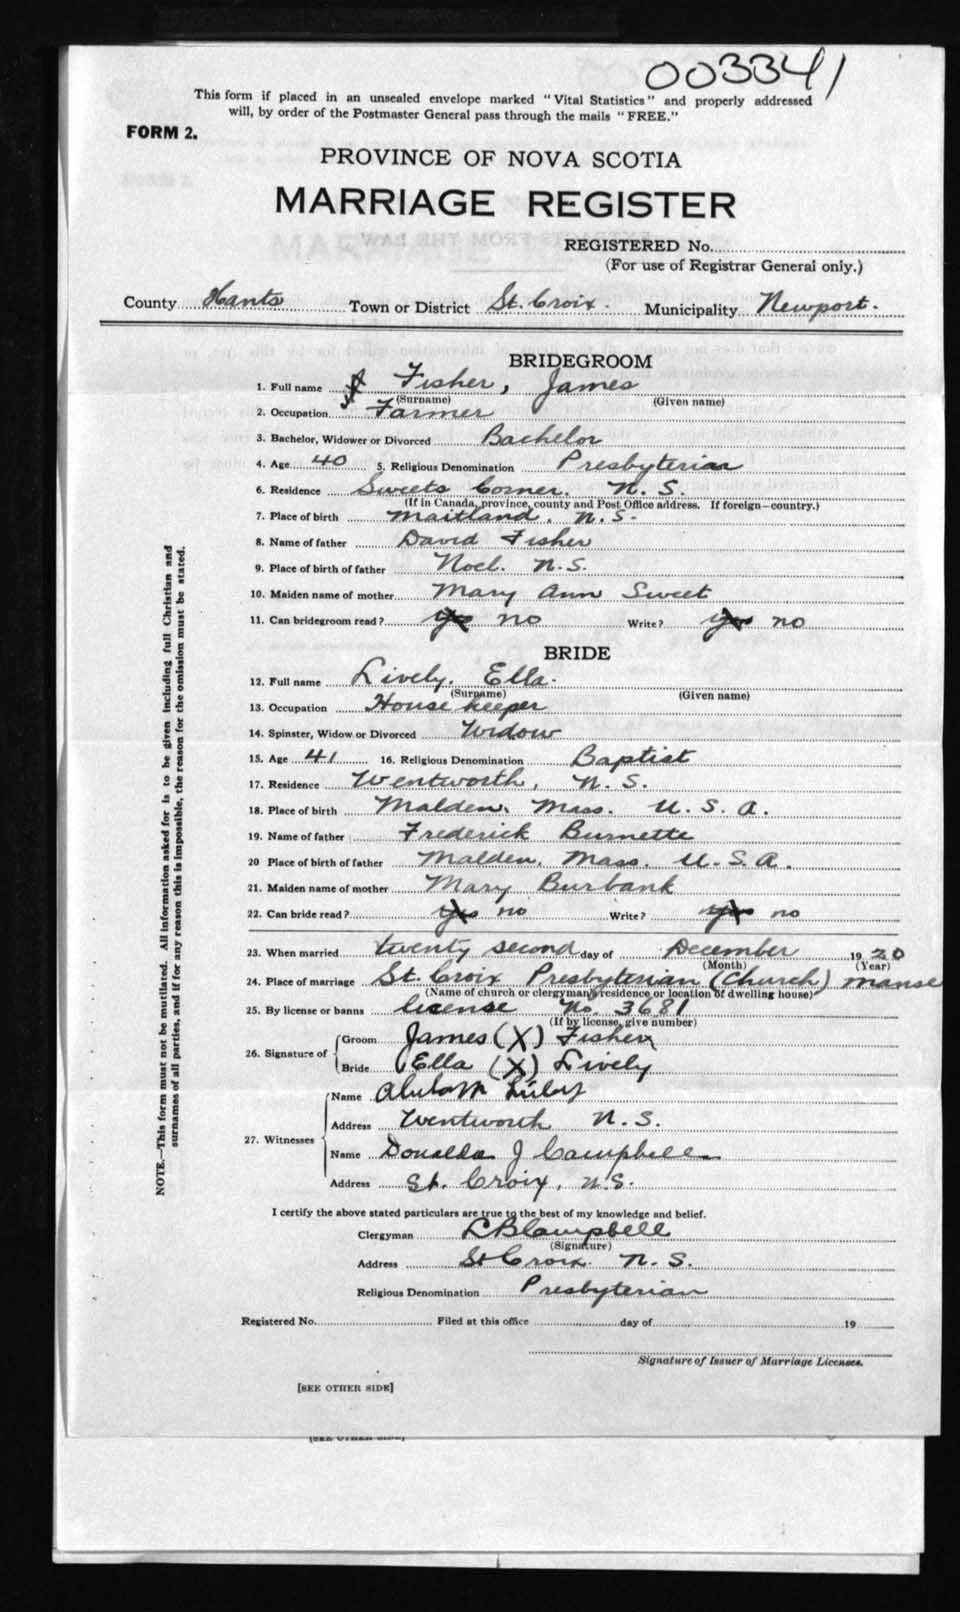 003341
This form if placed in an unsealed envelope marked "Vital Statistics" and properly addressed
will, by order of the Postmaster General pass through the mails "FREE."
FORM 2.
PROVINCE OF NOVA SCOTIA
MARRIAGE REGISTER
REGISTERED No.
(For use of Registrar General only.)
County Hants Town or District St. Croix. Municipality Newport.
BRIDEGROOM
1. Full name Fisher, James
(Surname) (Given name)
2. Occupation Farmer
3. Bachelor, Widower or Divorced Bachelor
4. Age 40 5. Religious Denomination Presbyterian
6. Residence Sweets Corner, N. S.
(If in Canada, province, county and Post Office address. If foreign—country.)
7. Place of birth Maitland, N. S.
8. Name of father David Fisher
9. Place of birth of father Noel. N. S.
10. Maiden name of mother Mary Ann Sweet
11. Can bridegroom read? yes no Write? yes no
BRIDE
12. Full name Lively. Ella.
(Surname) (Given name)
13. Occupation House keeper
14. Spinster, Widow or Divorced Widow
15. Age 41 16. Religious Denomination Baptist
17. Residence Wentworth, N. S.
18. Place of birth Malden, Mass. U. S. A.
19. Name of father Frederick Burnette
20 Place of birth of father Malden, Mass. U. S. A.
21. Maiden name of mother Mary Burbank
22. Can bride read? yes no Write? yes no
23. When married twenty second day of December 1920
(Month) (Year)
24. Place of marriage St. Croix Presbyterian (Church) manse
(Name of church or clergyman's residence or location of dwelling house)
25. By license or banns license No. 3681
(If by license, give number)
26. Signature of Groom James (X) Fisher
Bride Ella (X) Lively
27. Witnesses
Name
Address Wentworth N. S.
Name Donalda J Campbell
Address St. Croix, N. S.
I certify the above stated particulars are true to the best of my knowledge and belief.
Clergyman L B Campbell
(Signature)
Address St Croix. N. S.
Religious Denomination Presbyterian
Registered No. Filed at this office day of 19
Signature of Issuer of Marriage Licenses.
[SEE OTHER SIDE]
[SEE OTHER SIDE]
NOTE.—This form must not be mutilated. All information asked for is to be given including full Christian and
surnames of all parties, and if for any reason this is impossible, the reason for the omission must be stated.